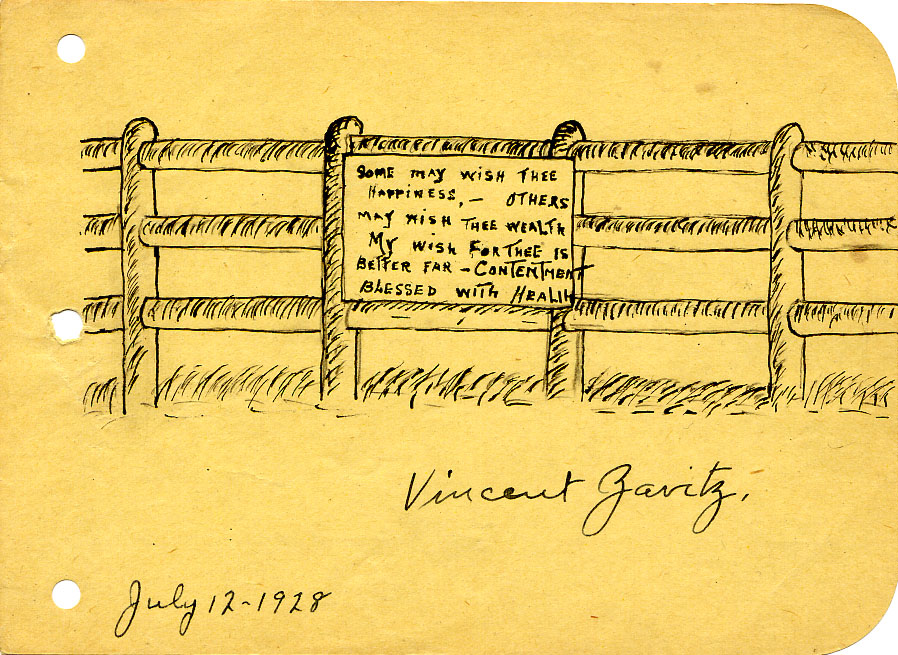 SOME MAY WISH THEE
HAPPINESS, – OTHERS
MAY WISH THEE WEALTH
MY WISH FOR THEE IS
BETTER FAR – CONTENTMENT
BLESSED WITH HEALTH
Vincent Zavitz.
July 12-1928